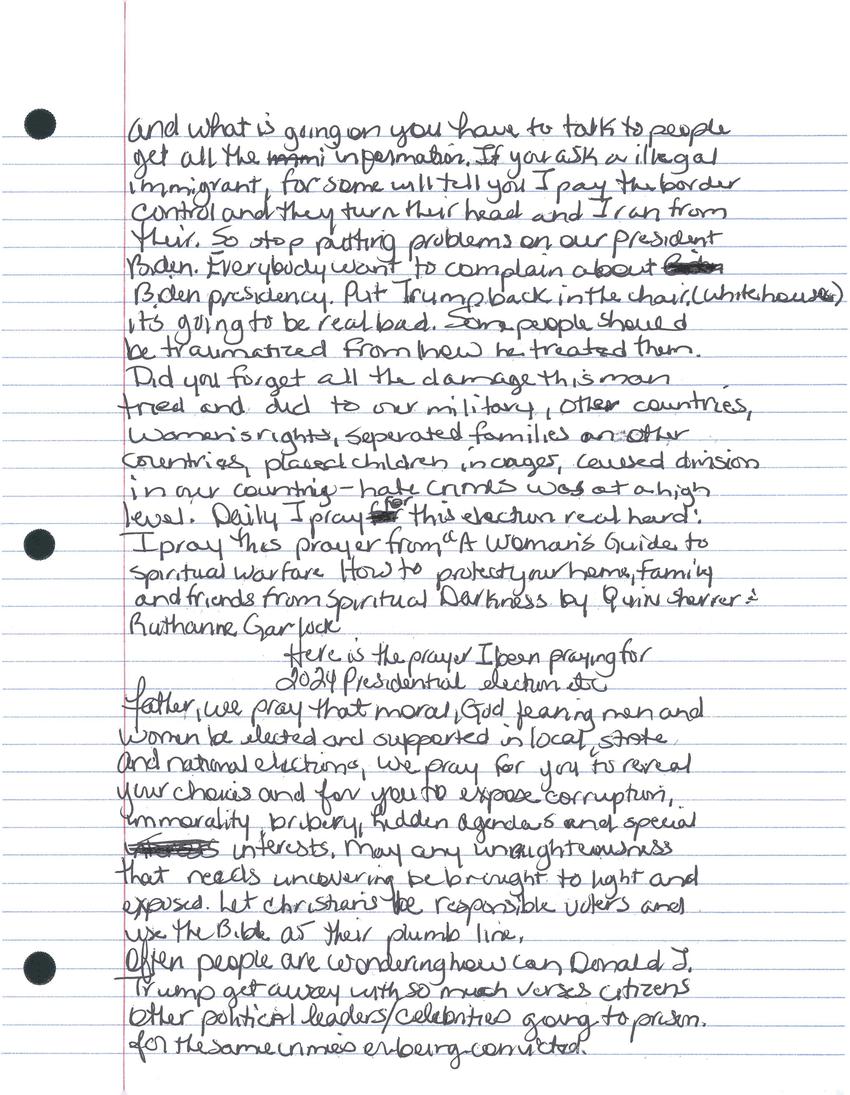 and what is going on you have to talk to people
get all the information. If you ask a illegal
immigrant, for some will tell you I pay the border
control and they turn their head and I ran from
their. So stop putting problems on our president
Biden. Everybody want to complain about
Biden presidency. Put Trump back in the chair, (white house)
it's going to be real bad. Some people should
be traumatized from how he treated them.
Did you forget all the damage this man
tried and did to our military, other countries,
women's rights, seperated families an other
countries, placed children in cages, caused division
in our country - hate crimes was at a high
level. Daily I pray for this election real hard.
I pray this prayer from "A Woman's Guide to
spiritual warfare How to protect your home, family
and friends from Spiritual Darkness by Quin Sherrer &
Ruthanne Garlock
Here is the prayer I been praying for
2024 Presidential election etc
father, we pray that moral, God fearing men and
women be elected and supported in local, state
and national elections, we pray for you to reveal
your choices and for you to expose corruption,
immorality, bribery, hidden agendas and special
interests. May any unrighteousness
that needs uncovering be brought to light and
exposed. Let christians be responsible voters and
use the Bible as their plumb line.
Often people are wondering how can Donald J.
Trump get away with so much verses citizens
other political leaders/celebrities going to prison.
for the same crimes or being convicted.